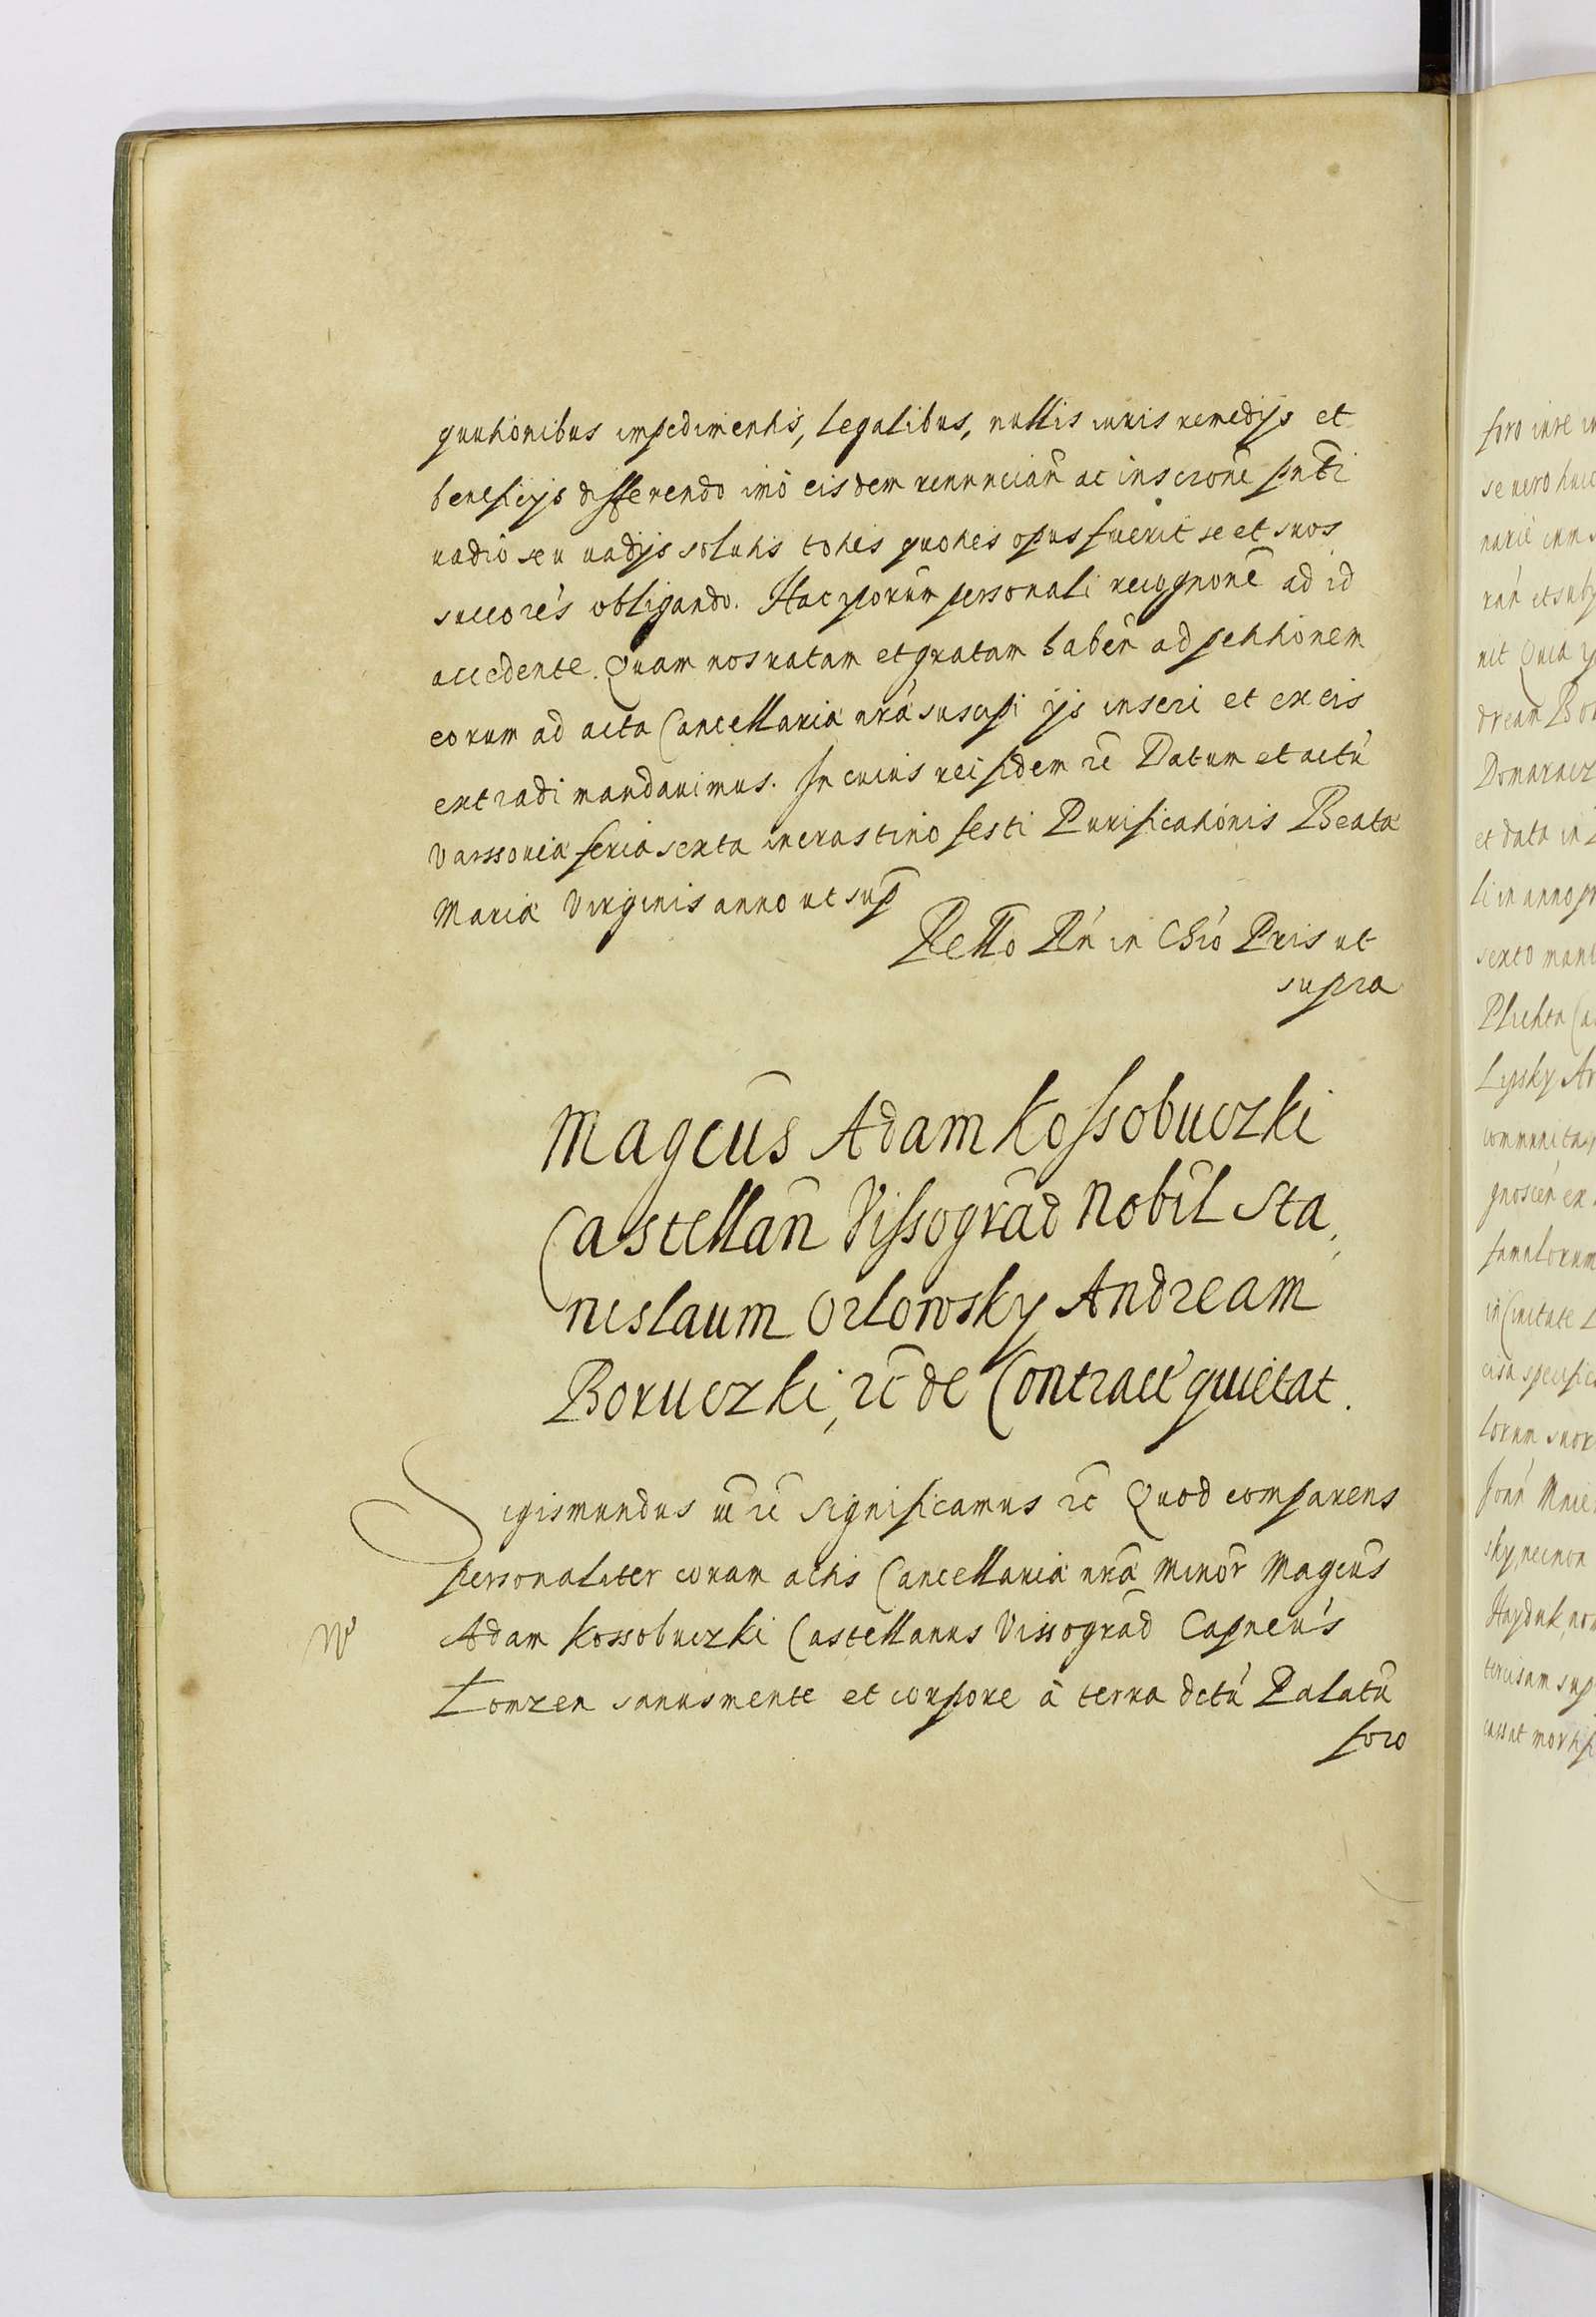 quutionibus impedimentis, legalibus, nullis iuris remedijs et
beneficijs differendo imò eisdem renuncian̄ ac inscrōne pn̄ti
vadio seu vadijs solutis toties quoties opus fuerit se et suos
succores obligando. Hac ipsorum̄ personali recognōne ad id
accedente. Quam nos ratam et gratam haben̄ ad petitionem
eorum ad acta Cancellariæ nr̄æ suscipi ijs inseri et ex eis
extradi mandavimus. In cuius rei fidem &c̄ Datum et actū
Varssoviæ feria sexta in crastino festi Purificationis Beatæ
Mariæ Virginis anno ut sup̄
Rello Rn̄ in Chrō Pris ut
supra
Magcus̄ Adam Kossobuczki
Castellan̄ Vissograd̄ Nobil̄ Sta,
nislaum Orlowsky Andream
Boruczki, &c̄ de Contract̄ quietat.
Sigismundus &c̄ Significamus &c̄ Quod comparens
personaliter coram actis Cancellariæ nr̄æ minor̄ Magcus̄
Adam Kossobuczki Castellanus Vissograd̄ Capneus̄
Łomzen sanus mente et corpore à terra dctū Palatū
foro
foro iure in
se vero huic
narie cum s
rari et sub
nit Quia
dream Bor
Donaracz
et data in
li in anno
sexto mani
Plichta Ca
Lipsky Ar
communita
gnoscen ex
famulorum
in Civitate
cisa specific
lorum suor
Joan̄ Mnie
sky, necnon
Hayduk, no
tercisam sup
cassat mortifi